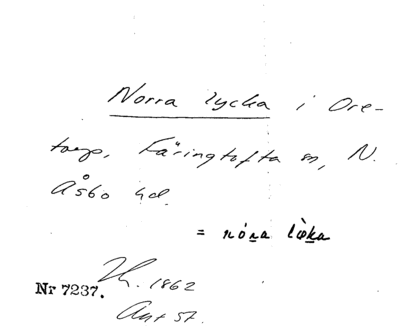 Norra lycka i Ore-
torp, Färingtofta sn, N.
Åsbo hd.
= nóra lỳka
Th. 1862
Nr 7237.
Ant 57.